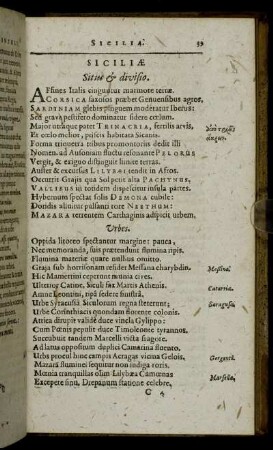 SICILIA. 39
SICILIÆ
Situs & divisio.
AFfines Italis cinguntur marmore terræ.
CORSICA saxosos præbet Genuensibus agros,
SARDINIAM glebis pinguem moderatur Iberus:
Sed gravi pestifero dominatur sidere cœlum.
Major utraque patet TRINACRIA, fertilis arvis,
Et cœlo melior, priscis habitata Sicanis.
Forma triquetra tribus promontoriis dedit illi
Nomen. ad Ausonium fluctu resonante PELORUS
Vergit, & exiguo distinguit limite terras.
Auster & excursus LILYBÆI tendit in Afros.
Occurrit Graiis qua Sol petit alta PACHYNUS,
VALLIS in tondem dispescitur insula partes.
Hybernum spectat solis DEMONA cubile:
Doridos albenti pulsanti rore NETHUM:
MAZARA terrentem Carthaginis adspicit urbem.
Urbes.
Oppida litoreo spectantur margine: pauca,
Nec memoranda, suis prætendunt flumina ripis.
Flumina materiæ quare nullius omitto.
Graja sub horrisonam residet Messana charybdin.
Hic Mamertini ceperunt mœnia cives. Messina.
Ulterior Catine, Siculi fax Martis Athenis. Catania.
Amne Leontini, ripâ sedere sinistrâ.
Urbs Syracusii Siculorum regna steterunt; Saragusa.
Urbs Corinthiacis quondam florente colonis.
Attica dirupit validè duce vincla Gylippo:
Cum Pœnis pepulit duce Timoleonte tyrannos.
Succubuit tandem Marcelli victa sagaci.
Adlatus oppositum duplici Camarina fluento.
Urbs procul hinc campis Acragas vicina Gelois. Gergenti.
Mazara fluminei sequitur non indiga roris.
Mœnia tranquillas olim Lilybæa Camœnas Marsella,
Excepere sinu, Drepanum statione celebre,
C 4